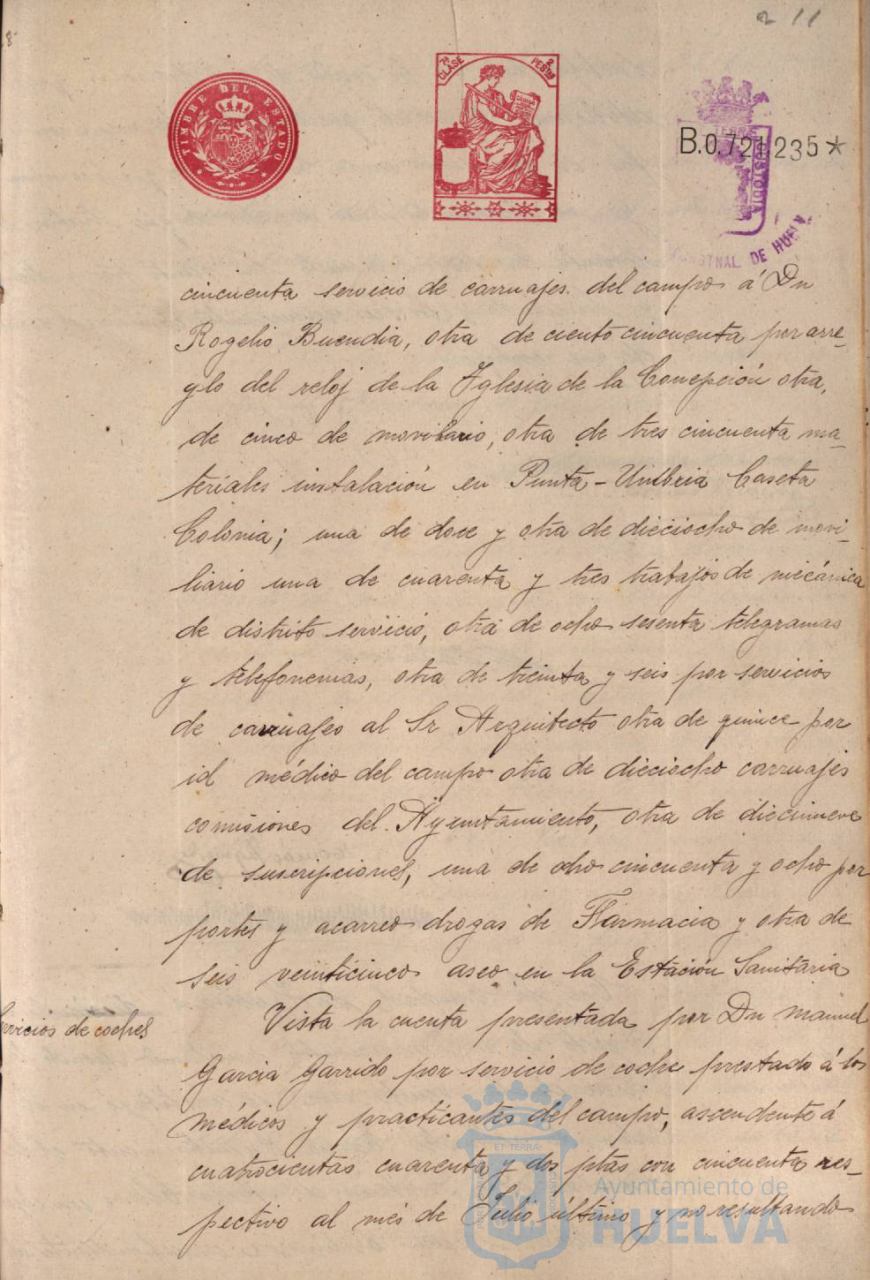 11
TIMBRE DEL ESTADO
7ª CLASE 2 PESTAS
B.0.721,235*
CUSTODIA
DE HUELVA
cincuenta servicio de carruajes. del campo á Dn
Rogelio Buendia, otra de ciento cincuenta por arre-
glo del reloj de la Iglesia de la Concepción otra,
de cinco de moviliario, otra de tres cincuenta ma-
teriales instalación en Punta-Umbria Caseta
Colonia; una de doce y otra de dieciocho de movi-
liario una de cuarenta y tres trabajos de mecánica
de distrito servicio, otra de ocho sesenta telegramas
y telefonemas, otra de treinta y seis por servicios
de carruajes al Sr Arquitecto otra de quince por
id médico del campo otra de dieciocho carruajes
comisiones del Ayuntamiento, otra de diecinueve
de suscripciones, una de ocho cincuenta y ocho por
portes y acarreo drogas de Farmacia y otra de
seis veinticinco aseo en la Estación Sanitaria
Servicios de coches
Vista la cuenta presentada por Dn Manuel
Garcia Garrido por servicio de coche prestado á los
médicos y practicantes del campo, ascendente á
cuatrocientas cuarenta y dos ptas con cincuenta res-
pectivo al mes de Julio último y no resultando
ET TERRA
Ayuntamiento de
HUELVA